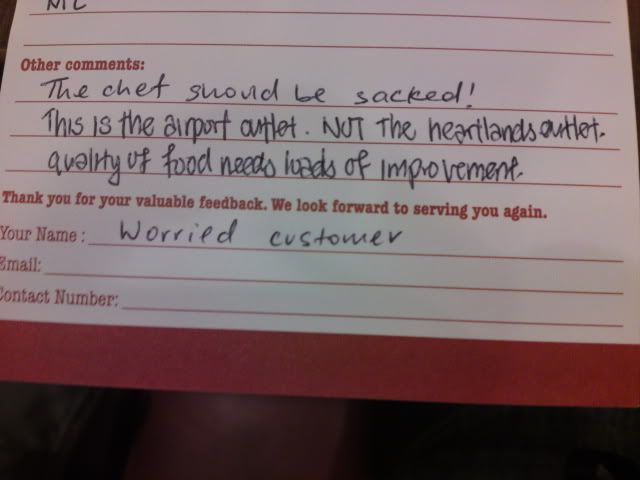 NIL
Other comments:
The chef should be sacked!
This is the airport outlet. NOT The heartlands outlet.
quality of food needs loads of improvement.
Thank you for your valuable feedback. We look forward to serving you again.
Your Name: Worried customer
Email:
Contact Number: